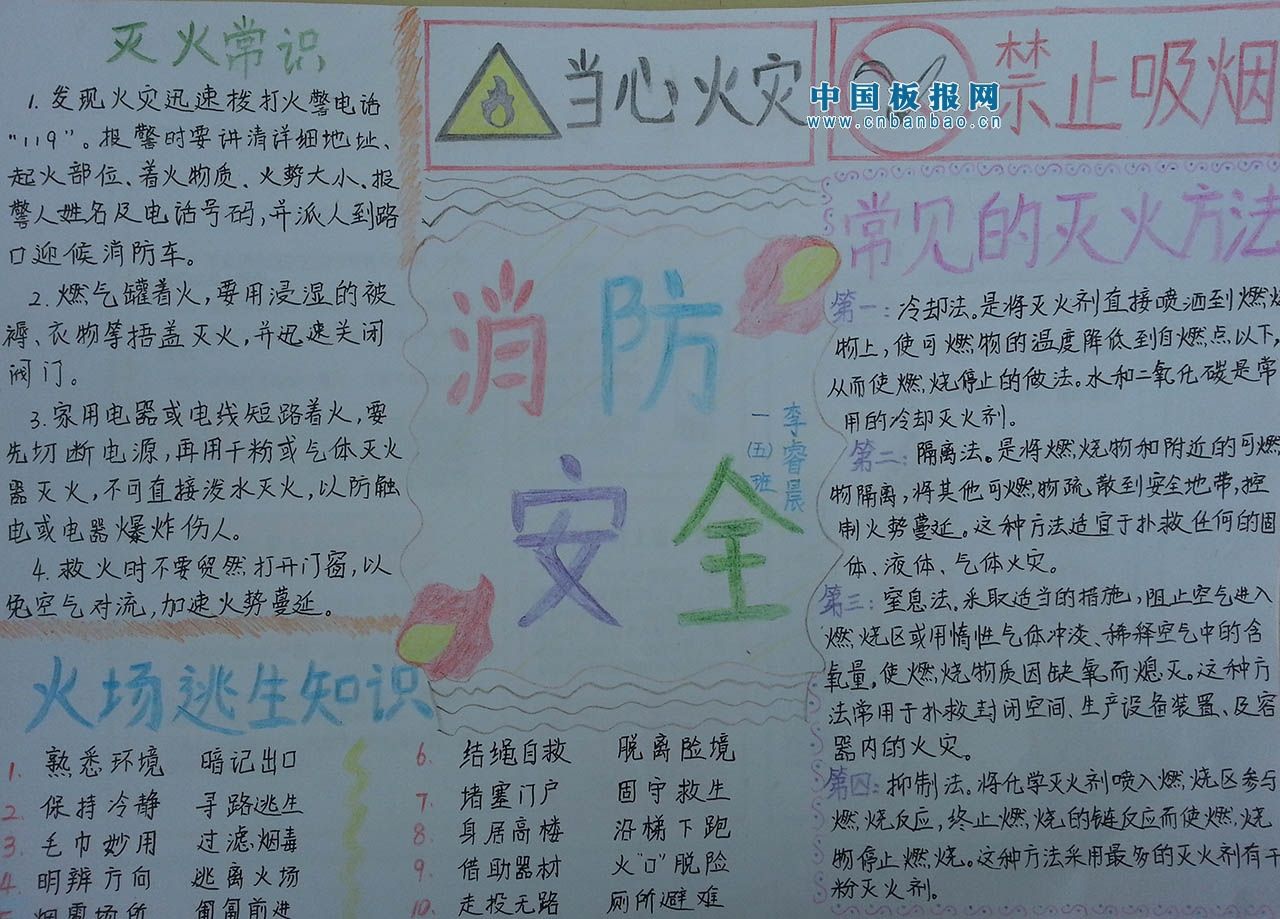 灭火常识
1. 发现火灾迅速拨打火警电话
“119”。报警时要讲清详细地址、
起火部位、着火物质、火势大小、报
警人姓名及电话号码,并派人到路
口迎候消防车。
2. 燃气罐着火,要用浸湿的被
褥、衣物等捂盖灭火,并迅速关闭
阀门。
3. 家用电器或电线短路着火,要
先切断电源,再用干粉或气体灭火
器灭火,不可直接泼水灭火,以防触
电或电器爆炸伤人。
4. 救火时不要贸然打开门窗,以
免空气对流,加速火势蔓延。
当心火灾
禁止吸烟
中国板报网
www.cnbanbao.cn
消防
安全
一(五)班
李睿晨
常见的灭火方法
第一:冷却法。是将灭火剂直接喷洒到燃烧
物上,使可燃物的温度降低到自燃点以下,
从而使燃烧停止的做法。水和二氧化碳是常
用的冷却灭火剂。
第二:隔离法。是将燃烧物和附近的可燃
物隔离,将其他可燃物疏散到安全地带,控
制火势蔓延。这种方法适宜于扑救任何的固
体、液体、气体火灾。
第三:窒息法。采取适当的措施,阻止空气进入
燃烧区或用惰性气体冲淡、稀释空气中的含
氧量,使燃烧物质因缺氧而熄灭。这种方
法常用于扑救封闭空间、生产设备装置、及容
器内的火灾。
第四:抑制法。将化学灭火剂喷入燃烧区参与
燃烧反应,终止燃烧的链反应而使燃烧
物停止燃烧。这种方法采用最多的灭火剂有干
粉灭火剂。
火场逃生知识
1. 熟悉环境 暗记出口
2. 保持冷静 寻路逃生
3. 毛巾妙用 过滤烟毒
4. 明辨方向 逃离火场
5 烟雾场所 匍匐前进
6. 结绳自救 脱离险境
7. 堵塞门户 固守救生
8. 身居高楼 沿梯下跑
9. 借助器材 火“口”脱险
10. 走投无路 厕所避难